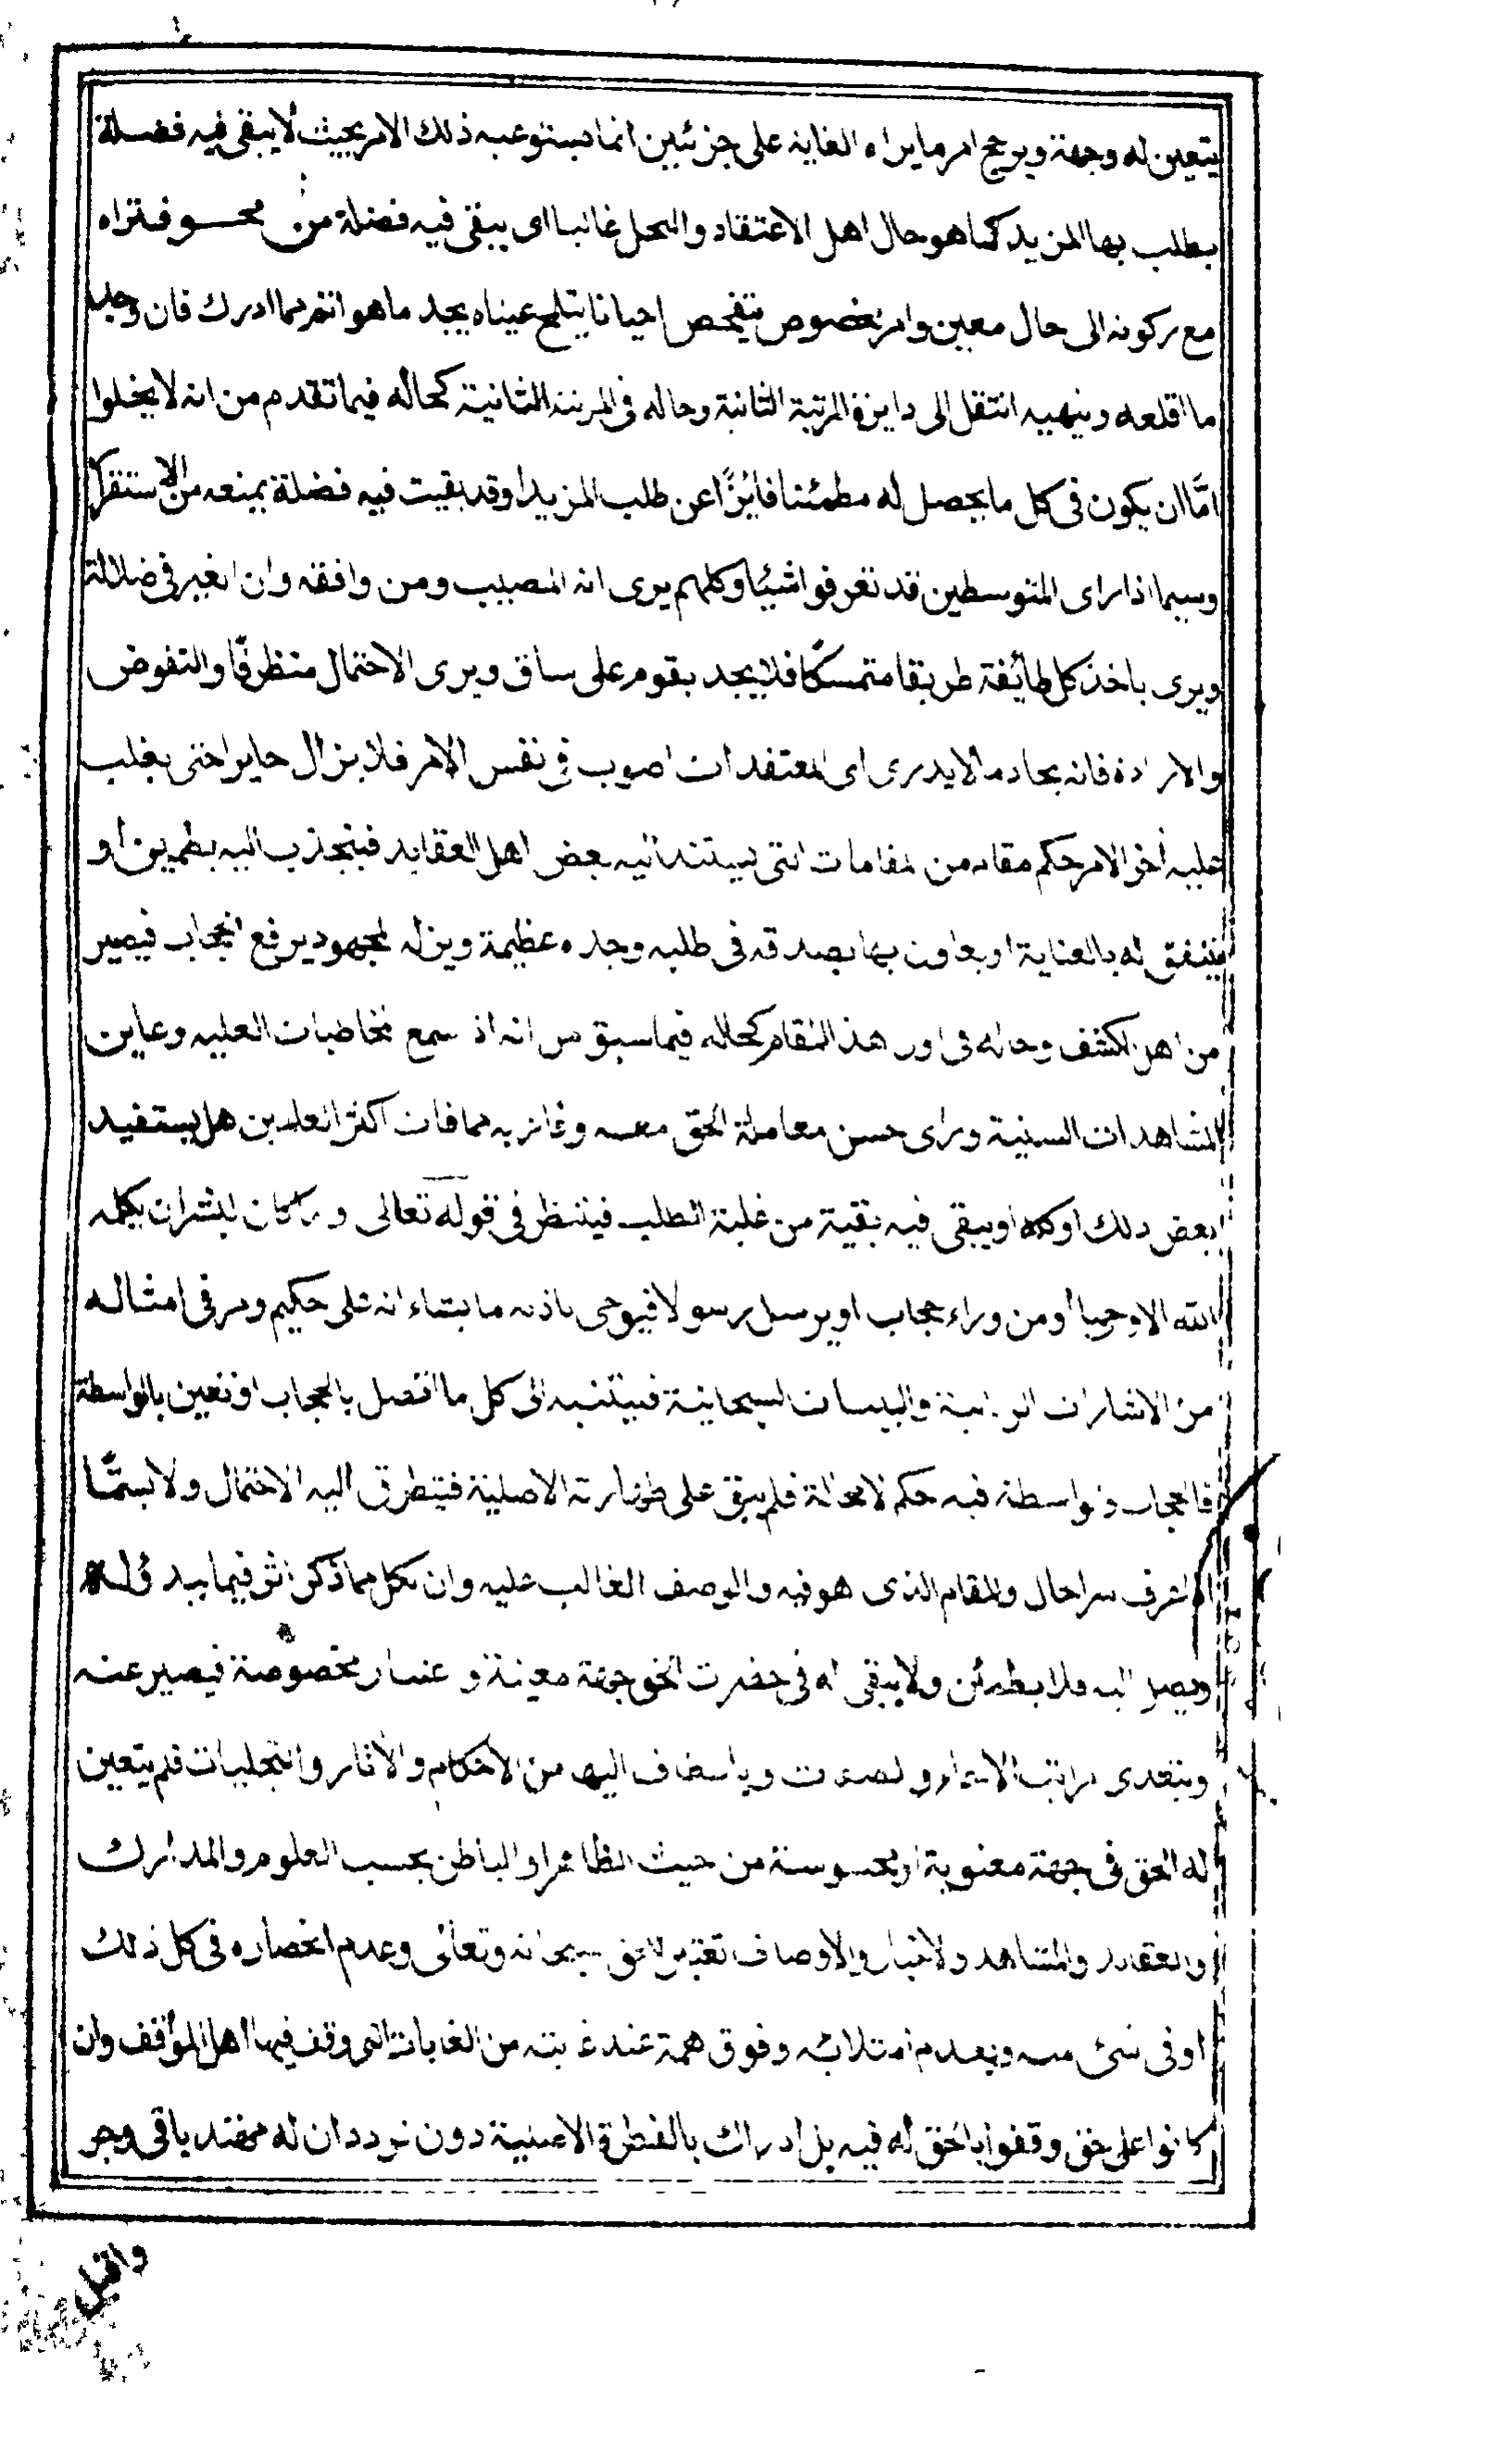 يتعين له وجهة ويرجح امر ما يراه الغاية على جزئين انما يستوعبه ذلك الامر بحيث لا يبقى فيه فضلة
يطلب بها المزيد كما هو حال اهل الاعتقاد والنحل غالبا اى يبقى فيه فضلة من محسو فتراه
مع ركونه الى حال معين وامر مخصوص متفحص احيانا يتلمح عيناه يجد ما هو اتم مما ادرك فان وجد
ما اقلعه وينهيه انتقل الى دايزة المرتبة الثانية وحاله فى المرتبة الثانية كحاله فيما تقدم من انه لا يخلوا
امّا ان يكون فى كل ما يحصل له مطمئنا فائزًا عن طلب المزيد او قد بقيت فيه فضلة يمنعه من الاستقرا
وسيما اذا راى المتوسطين قد تفرقوا شيئا وكلهم يرى انه المصيب ومن وافقه وان الغير فى ضلالة
ويرى باخذ كل طائفة طريقا متمسكا فلا يجد يقوم على ساق ويرى الاحتمال متطرقّا والنقوض
والارادة فانه يحاد مالا يدرى اى المعتقدات اصوب فى نفس الامر فلا يزال حايرا حتى يغلب
عليه أخر الامر حكم مقام من لمقامات التى يستند اليه بعض اهل العقايد فينجذب اليه يطمين او
يتفق له بالعناية او يعاون بها بصدقه فى طلبه وجده عظيمة ويزله لمجهود يرفع الحجاب فيصير
من اهل لكشف وحاله فى اور هذا المقام كحاله فيما سبق من انه اذ سمع مخاطبات العليه وعاين
المشاهدات السنية وراى حسن معاملة الحق معه وفاز به مما فات اكثر العلمين هل يستفيد
بعض ذلك او كله او يبقى فيه بقية من غلبة الطلب فينظر فى قوله تعالى وما كان لبشر ان يكلمه
الله الا وحيا أو من وراء حجاب او يرسل رسولا فيوحى باذنه ما يشاء انه على حكيم ومر فى امثاله
من الاشارات الربانية والبيسات لسبحانية فيتنبه الى كل ما اتصل بالحجاب او تعين بالواسطة
فالحجاب ولواسطة فيه حكم لا محالة فلم يبق على طهارته الاصلية فتيطرق اليه الاحتمال ولا يسمّا
اذا شرف سر احال والمقام الذى هو فيه والوصف الغالب عليه وان لكل مما ذكر اثر فيما يبد وله
ويصل اليه فلا يطمئن ولا يبقى له فى حضرت الحق جهة معينة و عتبار مخصوصة فيصير عنه
ويتعدى مراتب الاسماء و لصفت وياسضاف اليها من الاحكام والاثار والتجليات فلم يتعين
له الحق فى جهة معنوية او محسوسة من حيث الظاهر او الباطن بحسب العلوم والمدارك
والعقايد والمشاهد ولاخبار والاوصاف لحق سبحانه وتعالى وعدم انحصاره فى كل ذلك
او فى شئ منه وبعدم امتلائه وفوق همة عند غ يته من الغايات التى وقف فيها اهل المواقف وان
كانوا على حق وقفوا بالحق له فيه بل ادراك بالفطرة الاصلية دون تردد ان له باقى وجر
واقبل